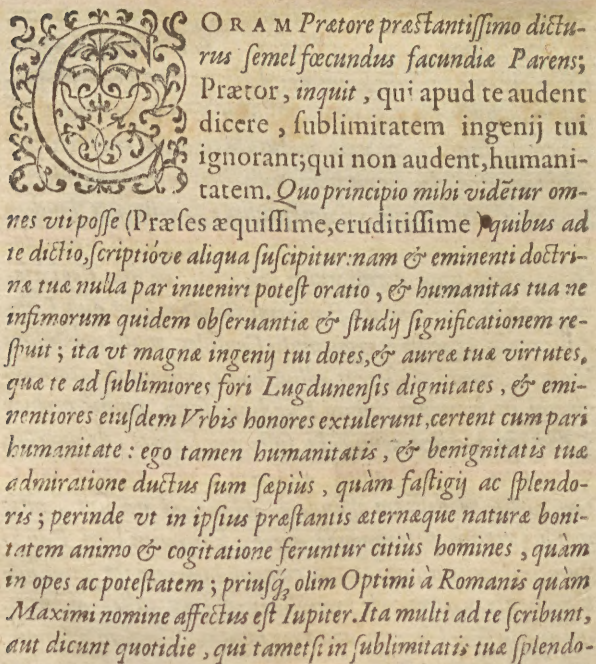 CORAM Prætore præstantiſſimo dictu-
rus ſemel fœcundus facundiæ Parens;
Prætor, inquit, qui apud te audent
dicere, ſublimitatem ingenij tui
ignorant; qui non audent, humani-
tatem. Quo principio mihi vidētur om-
nes vti poſſe (Præſes æquiſſime, eruditiſſime) quibus ad
te dictio, ſcriptióve aliqua ſuſcipitur: nam & eminenti doctri-
næ tuæ nulla par inueniri poteſt oratio, & humanitas tua ne
infimorum quidem obſeruantiæ & ſtudij ſignificationem re-
ſpuit; ita vt magnæ ingenij tui dotes, & aureæ tuæ virtutes,
quæ te ad ſublimiores fori Lugdunenſis dignitates, & emi-
nentiores eiuſdem Vrbis honores extulerunt, certent cum pari
humanitate: ego tamen humanitatis, & benignitatis tuæ
admiratione ductus ſum ſæpiùs, quàm faſtigij ac ſplendo-
ris; perinde vt in ipſius præſtantis æternæque naturæ boni-
tatem animo & cogitatione feruntur citiùs homines, quàm
in opes ac poteſtatem; priuſq́; olim Optimi à Romanis quàm
Maximi nomine affectus eſt Iupiter. Ita multi ad te ſcribunt,
aut dicunt quotidie, qui tametſi in ſublimitatis tuæ ſplendo-